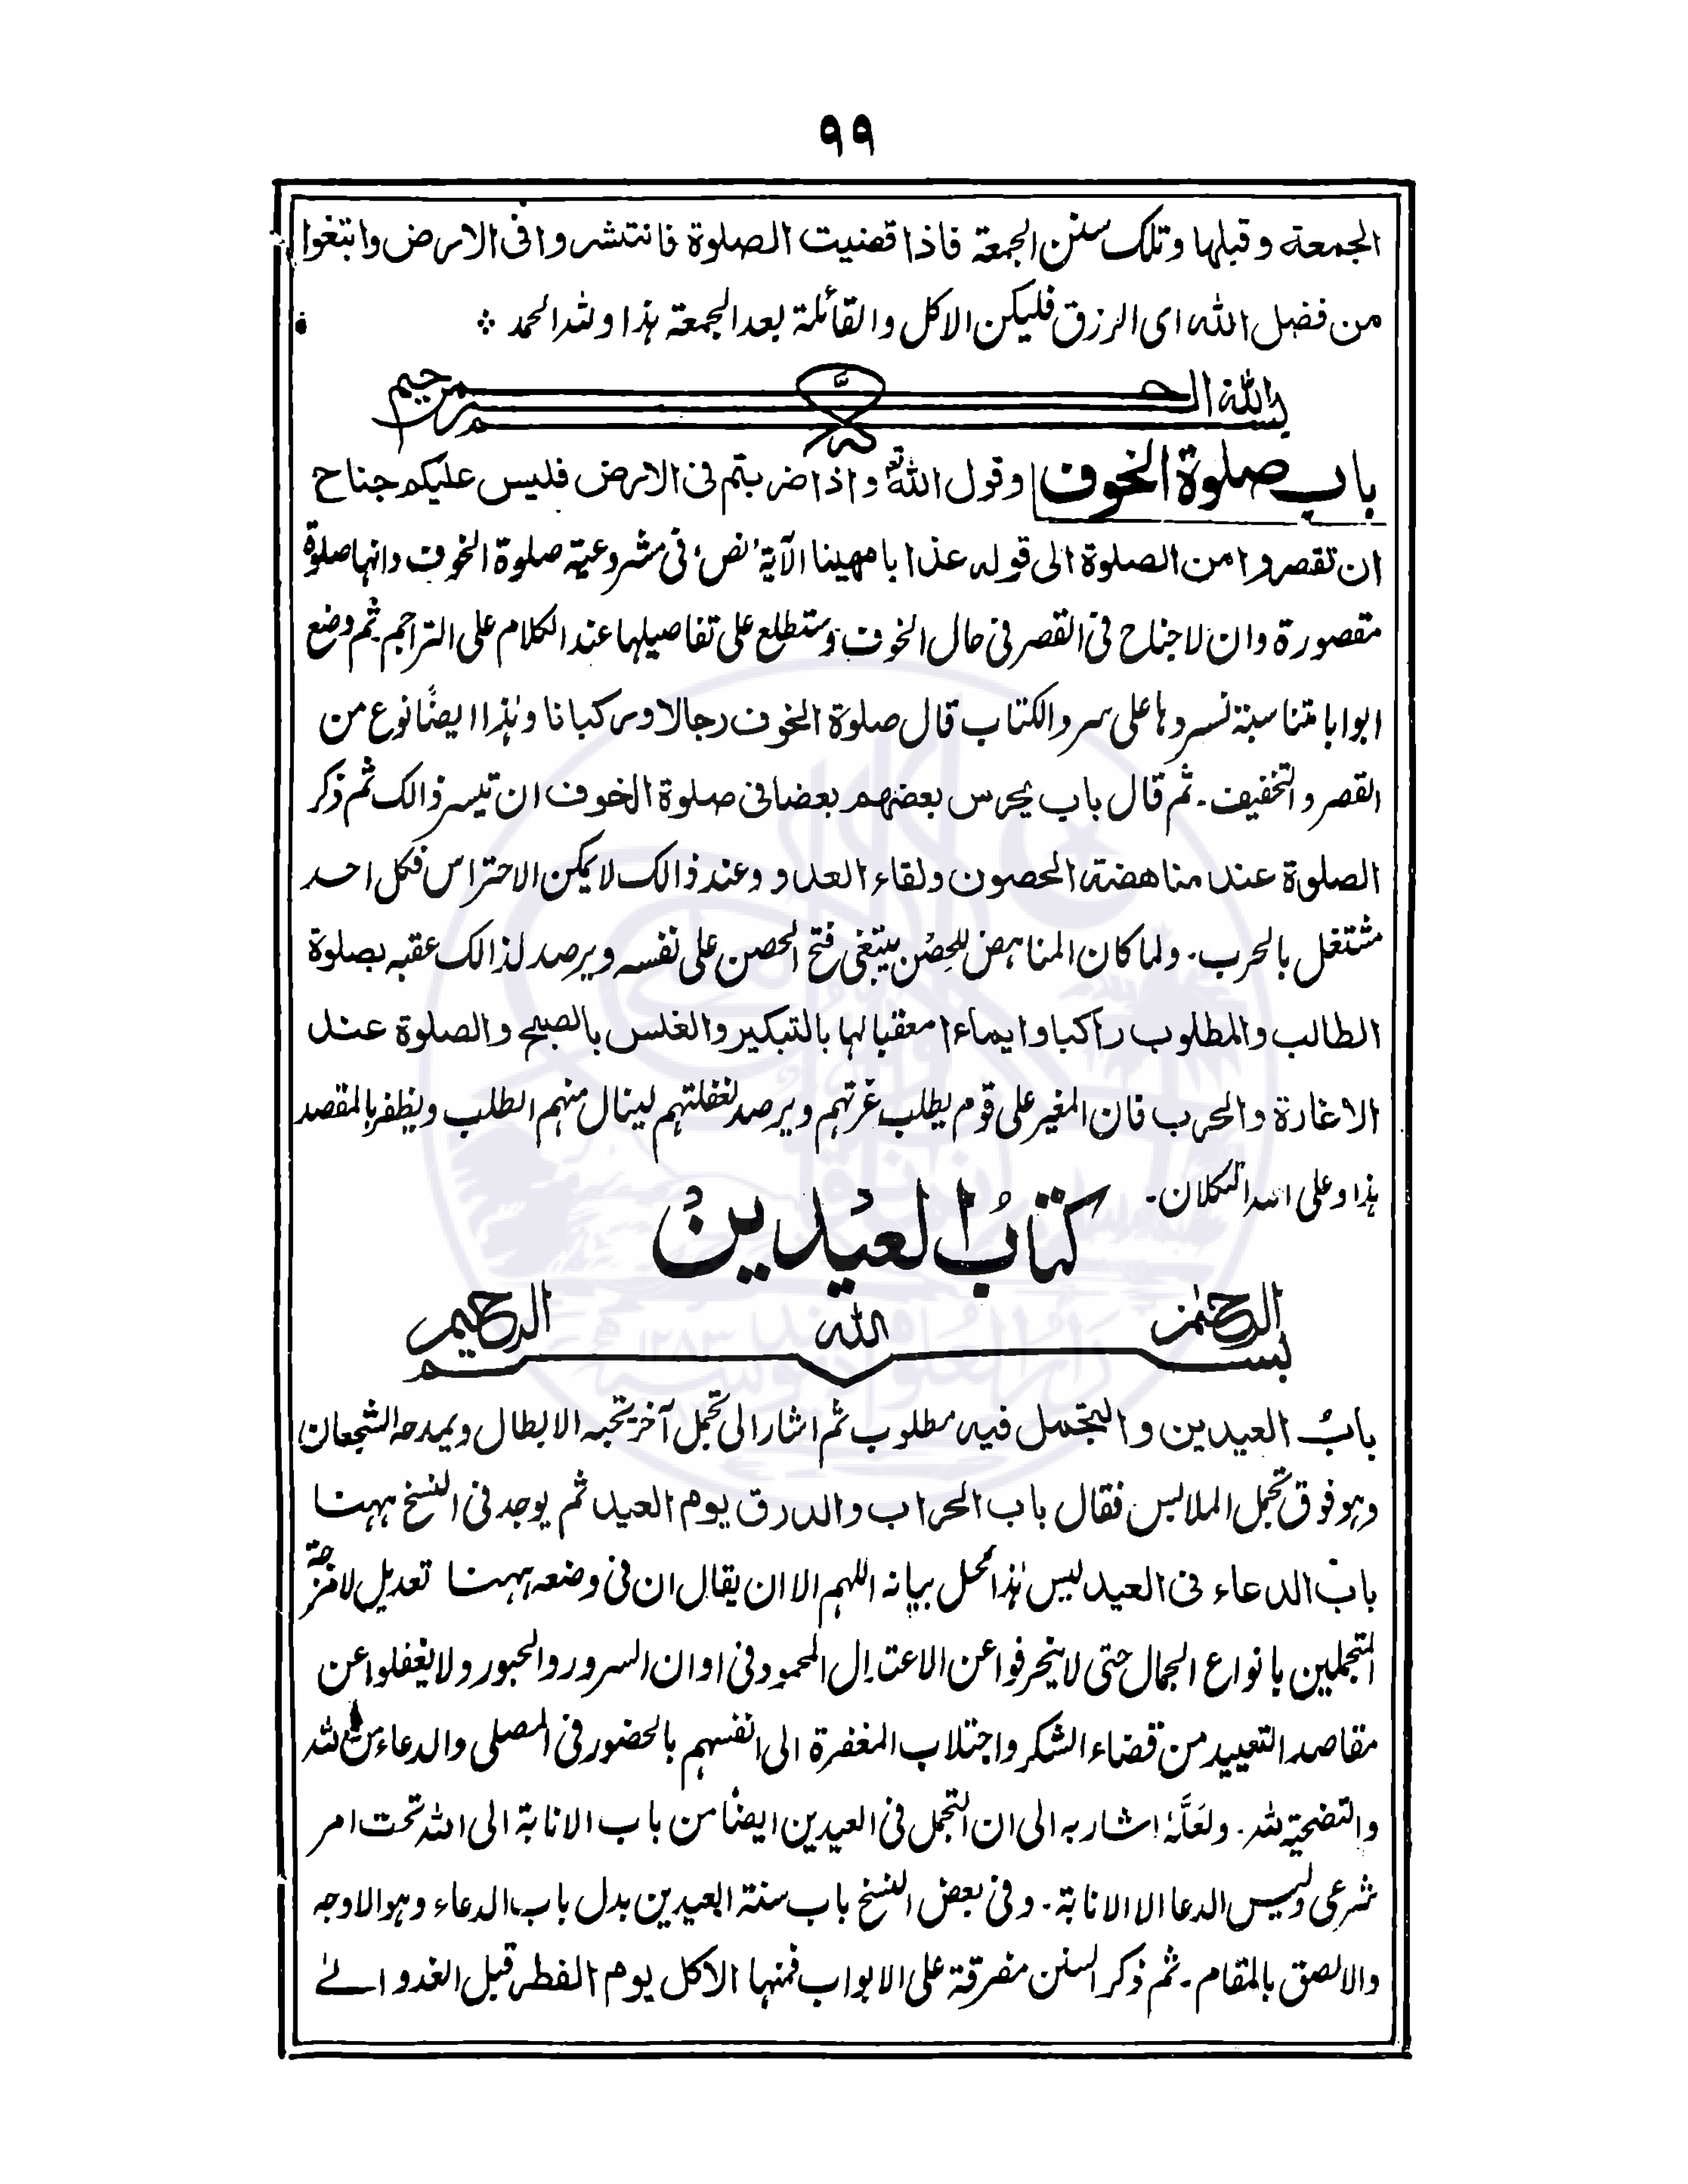 ٩٩
الجمعة وقبلها وتلك سنن الجمعة فاذا قضيت الصلوة فانتشروا فى الارض وابتغوا
من فضل الله اى الرزق فليكن الاكل والقائلة بعد الجمعة هذا ولله الحمد ⁘
بسم الله الرحمن الرحيم
باب صلوة الخوف وقول الله تعـ واذا ضربتم فى الارض فليس عليكم جناح
ان تقصروا من الصلوة الى قوله عذابا مهينا الآية نص فى مشروعية صلوة الخوف وانها صلوة
مقصورة وان لا جناح فى القصر فى حال الخوف وستطلع على تفاصيلها عند الكلام على التراجم ثم وضع
ابوابا متناسبة نسردها على سرد الكتاب قال صلوة الخوف رجالا وركبانا وهذا ايضًا نوع من
القصر والتخفيف۔ ثم قال باب يحرس بعضهم بعضا فى صلوة الخوف ان تيسر ذالك ثم ذكر
الصلوة عند مناهضة الحصون ولقاء العدو وعند ذالك لا يمكن الاحتراس فكل احد
مشتغل بالحرب۔ ولما كان المناهض للحصن يبتغى فتح الحصن على نفسه ويرصد لذالك عقبه بصلوة
الطالب والمطلوب راكبا وايماءا معقبا لها بالتبكير والغلس بالصبح والصلوة عند
الاغارة والحرب فان المغير على قوم يطلب غرتهم ويرصد لغفلتهم لينال منهم الطلب ويظفر بالمقصد
هذا وعلى الله التكلان۔
كتابُ العيدين
بسم الله الرحمن الرحيم
بابُ العيدين والتجمل فيه مطلوب ثم اشار الى تجمل آخر تحبه الابطال ويمدحه الشجعان
وهو فوق تجمل الملابس فقال باب الحراب والدرق يوم العيد ثم يوجد فى النسخ ههنا
باب الدعاء فى العيد ليس هذا محل بيانه اللهم الا ان يقال ان فى وضعه ههنا تعديل لامزجة
المتجملين بانواع الجمال حتى لا ينحرفوا عن الاعتدال المحمود فى اوان السرور والحبور ولا يغفلوا عن
مقاصد التعييد من قضاء الشكر واجتلاب المغفرة الى انفسهم بالحضور فى المصلى والدعاء من الله
والتضحية لله۔ ولعَلَّهٗ اشار به الى ان التجمل فى العيدين ايضًا من باب الانابة الى الله تحت امر
شرعى وليس الدعا الا الانابة۔ وفى بعض النسخ باب سنة العيدين بدل باب الدعاء وهو الاوجه
والالصق بالمقام۔ ثم ذكر السنن مفرقة على الابواب فمنها الاكل يوم الفطر قبل الغدو الے